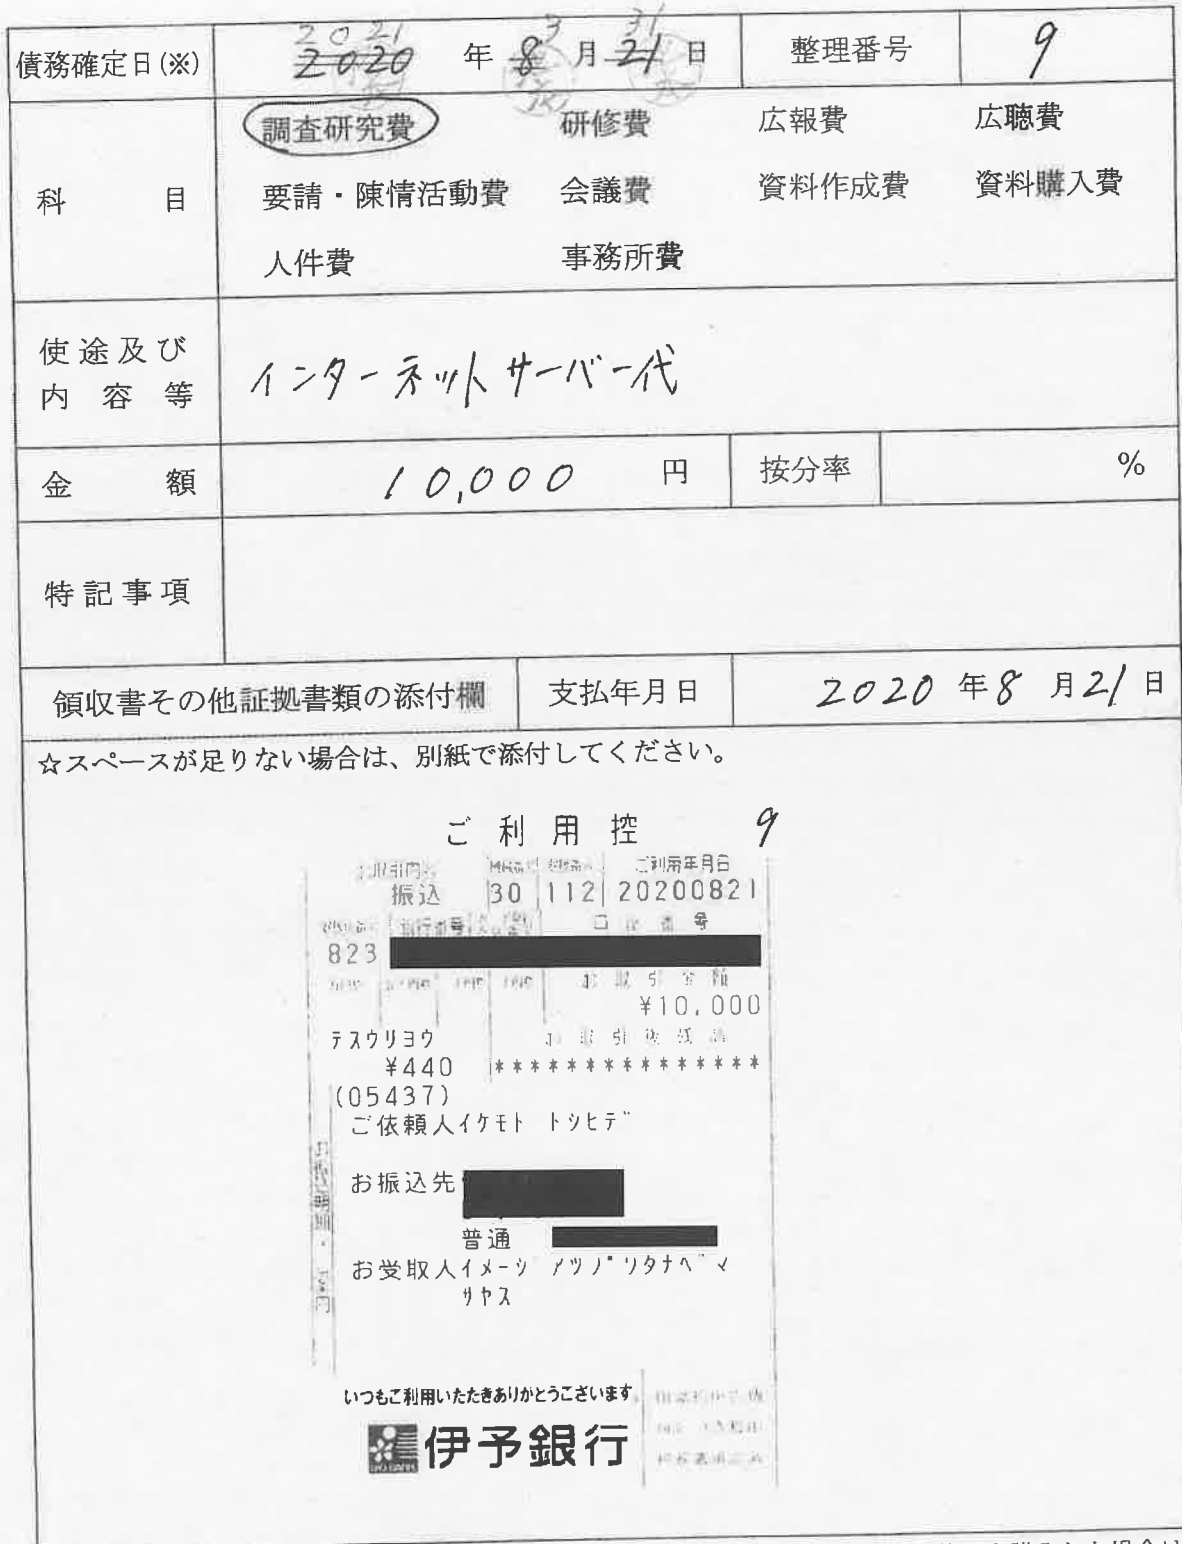 2021 3 31
債務確定日(※) 2020 年 8 月 21 日 整理番号 9
科目 調査研究費 研修費 広報費 広聴費
要請・陳情活動費 会議費 資料作成費 資料購入費
人件費 事務所費
使途及び内容等 インターネットサーバー代
金額 10,000 円 按分率 %
特記事項
領収書その他証拠書類の添付欄 支払年月日 2020 年 8 月 21 日
☆スペースが足りない場合は、別紙で添付してください。
ご利用控 9
ご利用年月日
振込 30 112 20200821
口座番号
823
お取引金額
¥10,000
テスウリヨウ お取引後残高
¥440 **************
(05437)
ご依頼人イケモト トシヒデ
お振込先
普通
お受取人イメージ アツプ ワタナベ マ
サヤス
いつもご利用いただきありがとうございます
伊予銀行